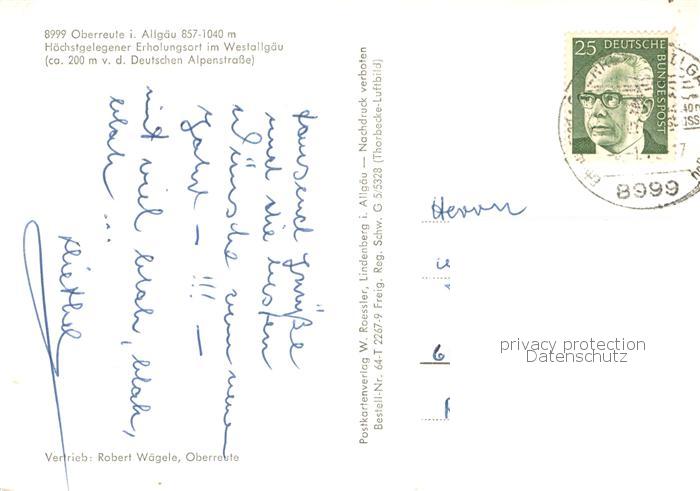 8999 Oberreute i. Allgäu 857-1040 m
Höchstgelegener Erholungsort im Westallgäu
(ca. 200 m v. d. Deutschen Alpenstraße)
tausend Grüße
und die besten
Wünsche zum neuen
Jahr – !!! –
mit viel blah, blah,
blah ...
Vertrieb: Robert Wägele, Oberreute
Postkartenverlag W. Roessler, Lindenberg i. Allgäu — Nachdruck verboten
Bestell-Nr. 64-T 2267-9 Freig. Reg. Schw. G 5/5328 (Thorbecke-Luftbild)
25 DEUTSCHE
BUNDESPOST
8999
Herrn
6
privacy protection
Datenschutz